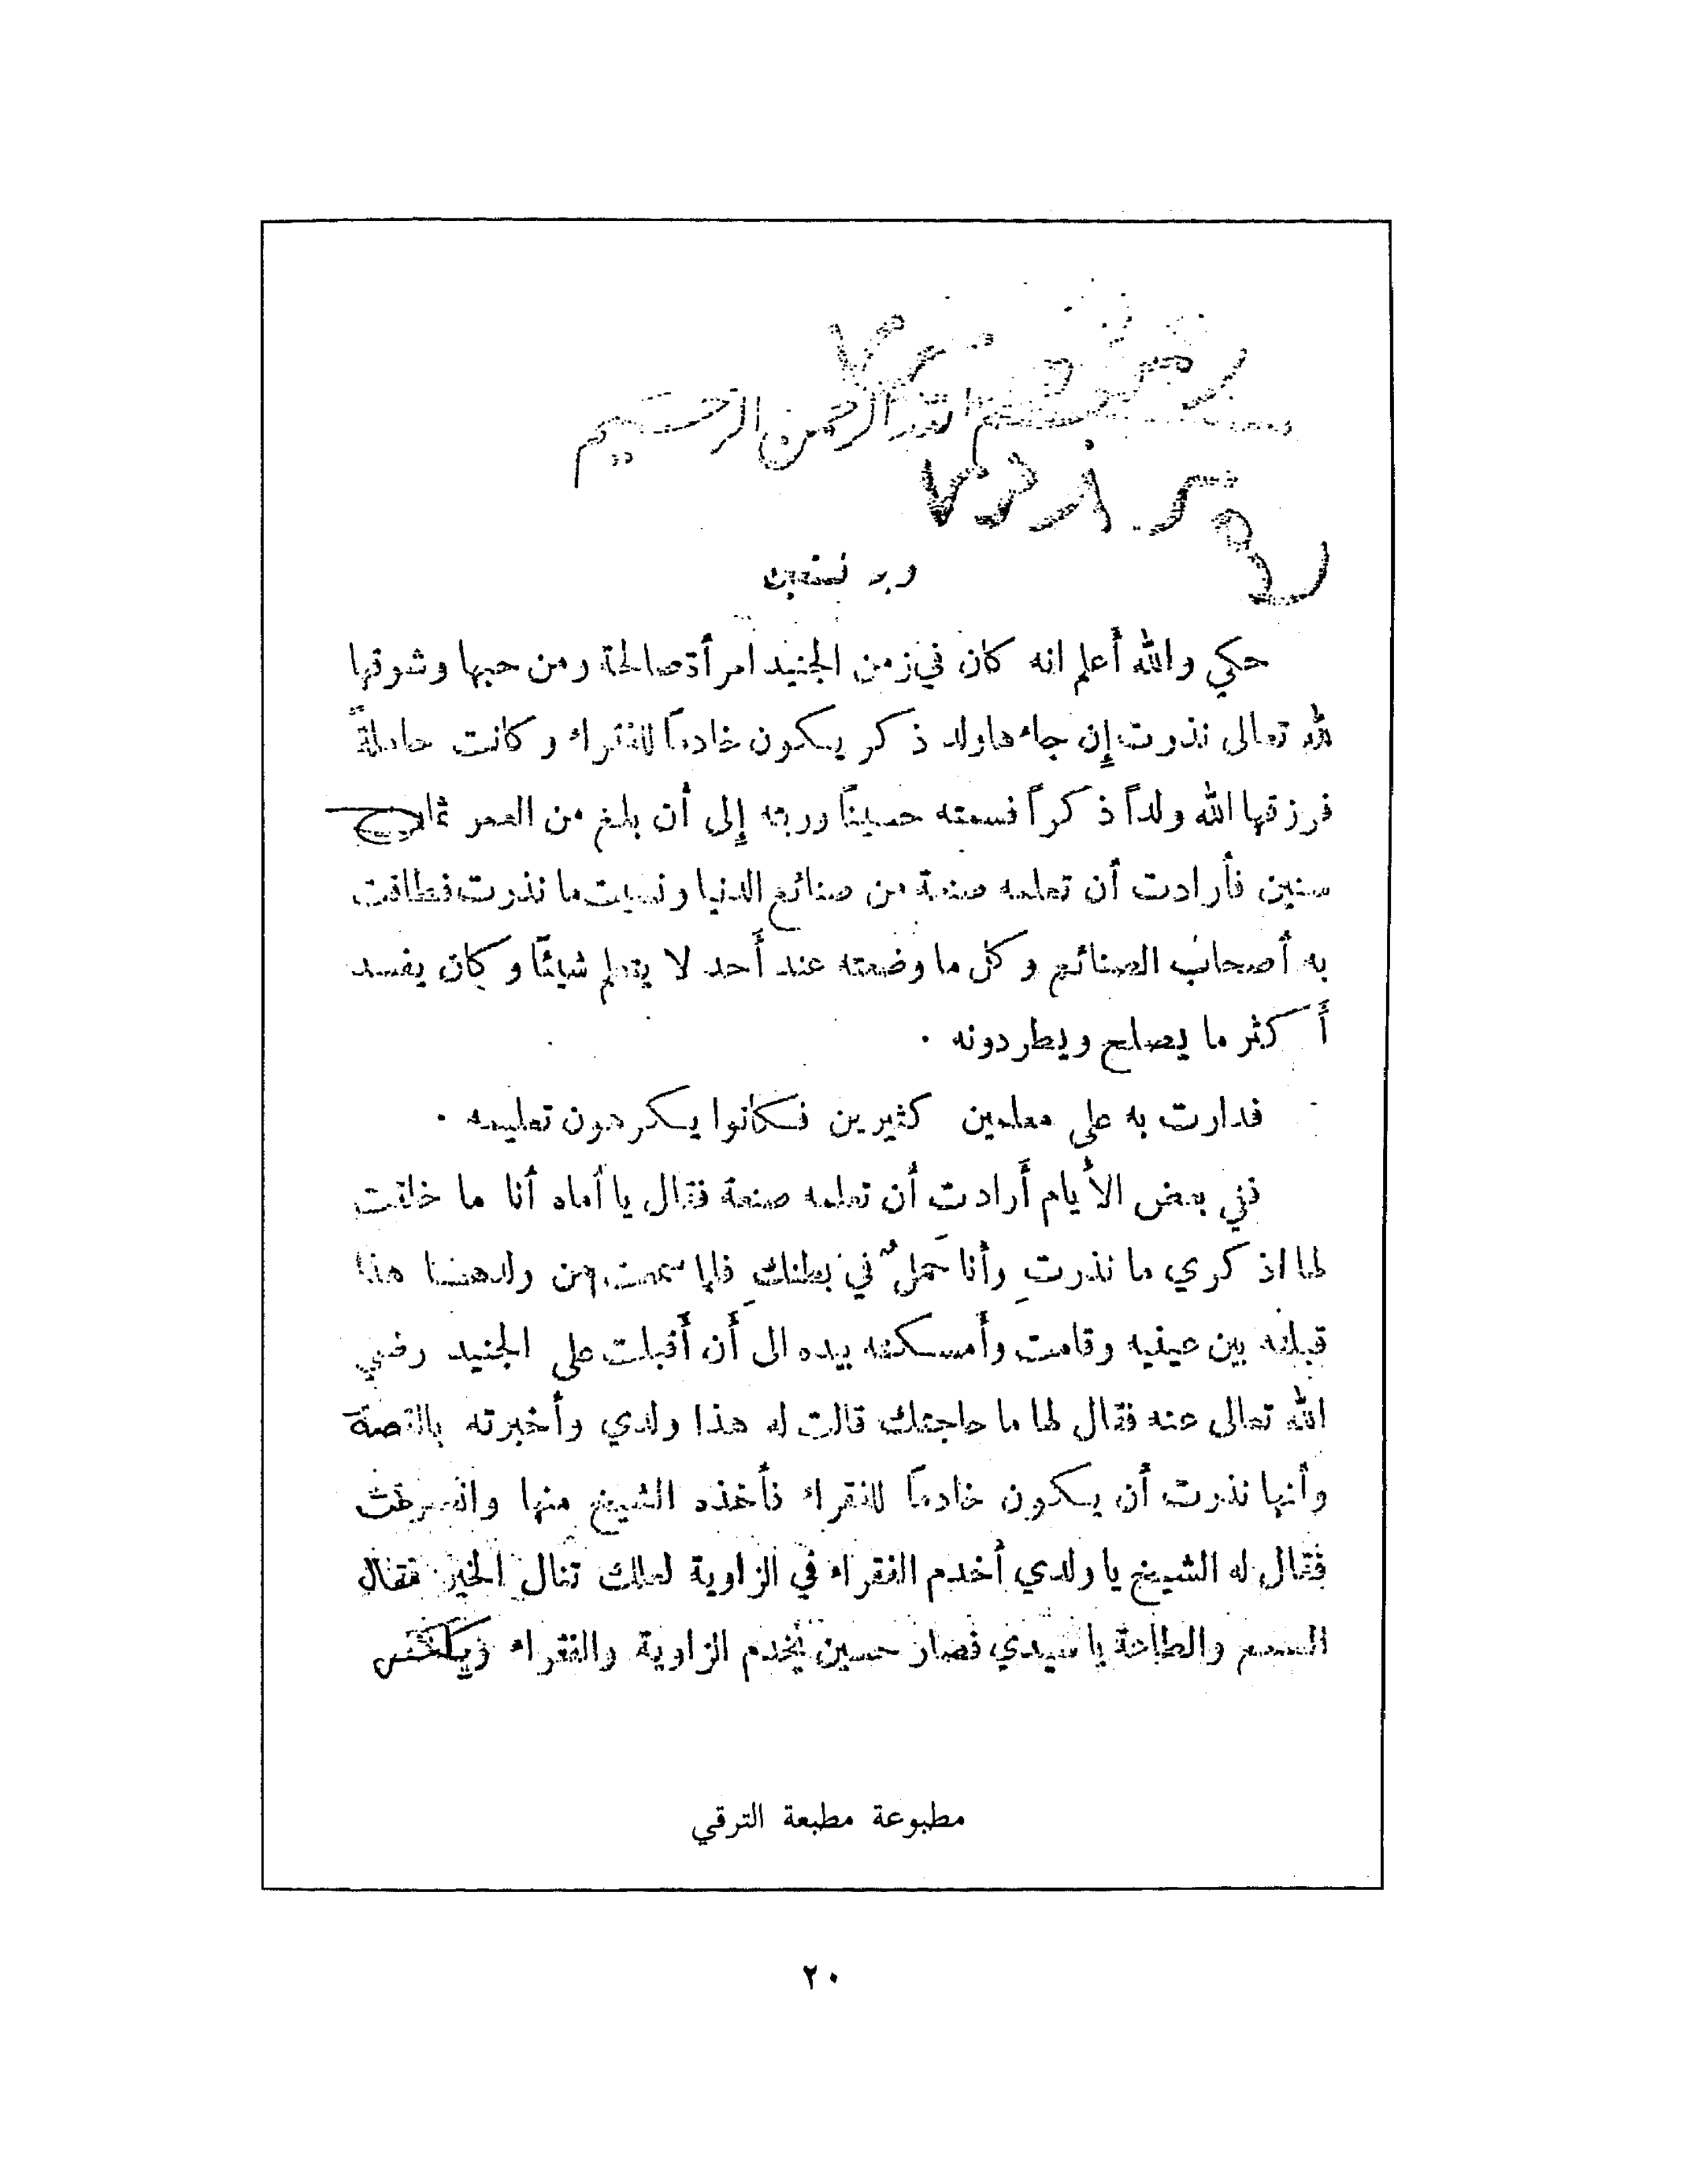 بسم الله الرحمن الرحيم
وبه نستعين
حكي والله أعلم انه كان في زمن الجنيد امرأة صالحة ومن حبها وشوقها
لله تعالى نذرت إن جاءها ولد ذكر يكون خادماً للفقراء وكانت حاملةً
فرزقها الله ولداً ذكراً فسمته حسيناً وربته إلى أن بلغ من العمر
سنين فأرادت أن تعلمه صنعة من صنائع الدنيا ونسيت ما نذرت فطافت
به أصحاب الصنائع وكل ما وضعته عند أحد لا يتعلم شيئاً وكان يفسد
أكثر ما يصلح ويطردونه .
فدارت به على معلمين كثيرين فكانوا يكرهون تعليمه .
ففي بعض الأيام أرادت أن تعلمه صنعة فقال يا أماه أنا ما خلقت
لها اذكري ما نذرتِ وأنا حَملٌ في بطنكِ فلما سمعت من ولدها هذا
قبلته بين عينيه وقامت وأمسكته بيده الى أن أقبلت على الجنيد رضي
الله تعالى عنه فقال لها ما حاجتك قالت له هذا ولدي وأخبرته بالقصة
وأنها نذرت أن يكون خادماً للفقراء فأخذه الشيخ منها وانصرفت
فقال له الشيخ يا ولدي أخدم الفقراء في الزاوية لعلك تنال الخير فقال
السمع والطاعة يا سيدي فصار حسين يخدم الزاوية والفقراء ويكنس
مطبوعة مطبعة الترقي
٢٠